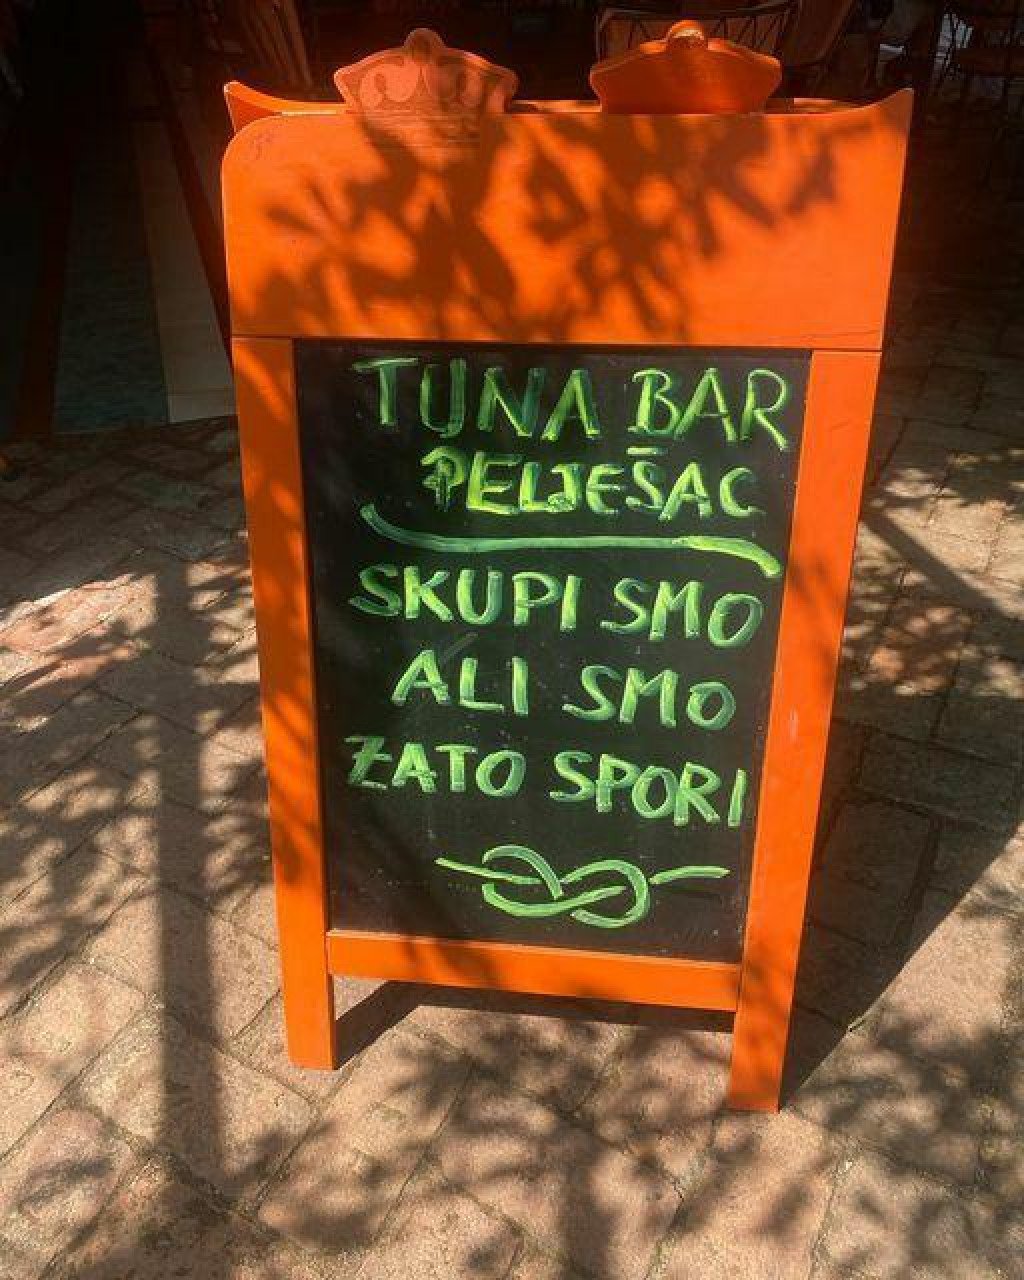 TUNA BAR
PELJEŠAC
SKUPI SMO
ALI SMO
ZATO SPORI